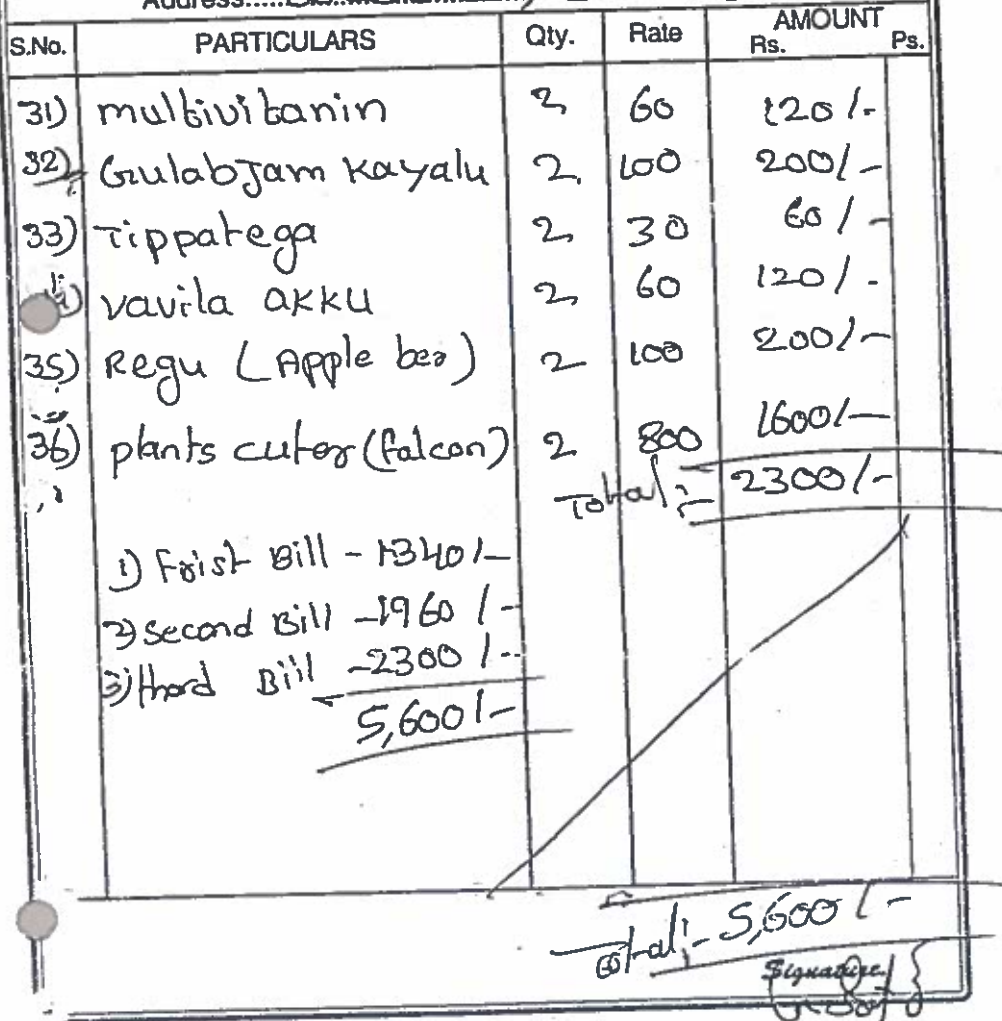 Address.....
S.No. PARTICULARS Qty. Rate AMOUNT
Rs. Ps.
31) multivitanin 2 60 120/-
32) GulabJam Kayalu 2 100 200/-
33) Tippatega 2 30 60/-
vavila akku 2 60 120/-
35) Regu (Apple ber) 2 100 200/-
36) plants cuter (falcon) 2 800 1600/-
Total :- 2300/-
1) Frist Bill - 1340/-
2) Second Bill - 1960/-
3) thord Bill - 2300/-
5,600/-
Total :- 5,600/-
Signature